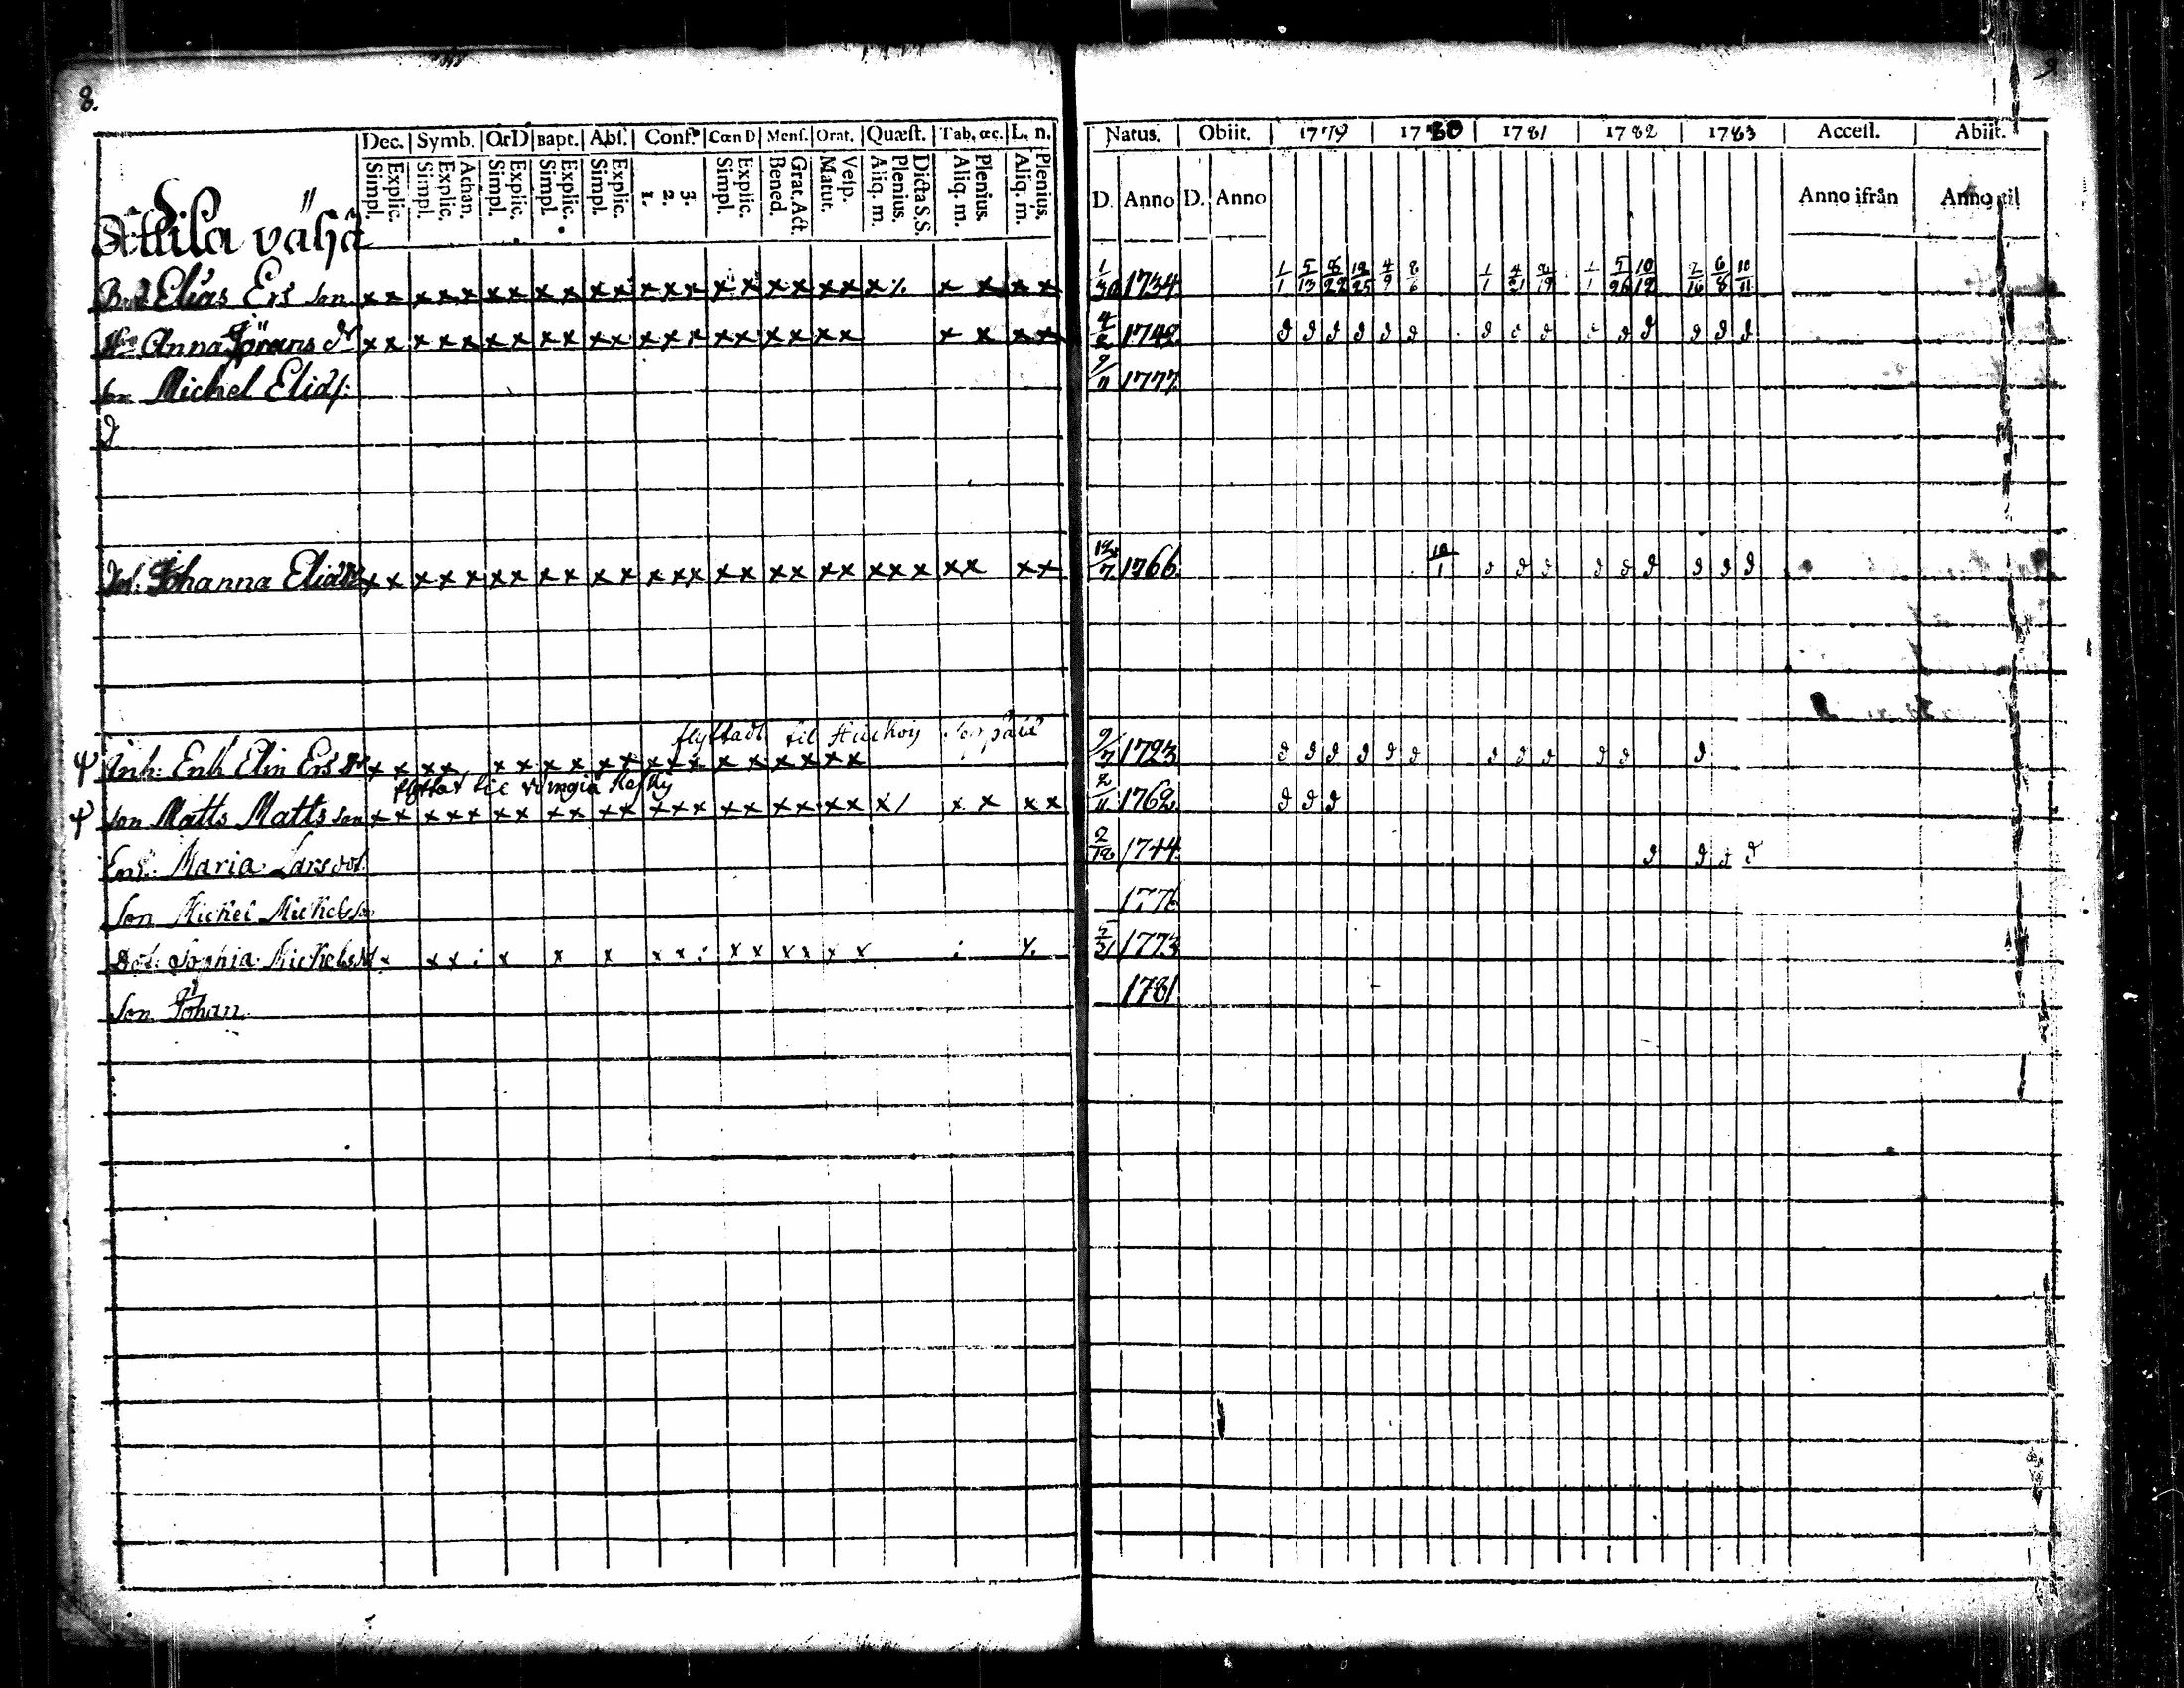 8.
9
Dec. Symb. OrD Bapt. Abs. Conf. CœnD Mens. Orat. Quæst. Tab. œc. L. n.
Simpl. Explic. Simpl. Explic. Athan. Simpl. Explic. Simpl. Explic. Simpl. Explic. 1. 2. 3. Simpl. Explic. Bened. Grat. Act. Matut. Vesp. Aliq. m. Plenius. Dicta S.S. Aliq. m. Plenius. Aliq. m. Plenius.
Natus. Obiit. 1779 1780 1781 1782 1783 Access. Abiit.
D. Anno D. Anno Anno ifrån Anno til
Attila vähä
Elias Ers son x x x x x x x x x x x x x x x x x x x x x x x x x 1/30 1734 1/1 5/13 8/22 12/25 4/9 8/6 1/1 4/21 8/19 1/1 5/26 10/12 2/16 6/8 10/11
Anna Jörans dr x x x x x x x x x x x x x x x x x x x x x x x x 4/2 1742 d d d d d d d d d d d d d d
son Michel Elids: 9/11 1777
d
Dot: Johanna Elid x x x x x x x x x x x x x x x x x x x x x x x x x x 12/7 1766 10/1 d d d d d d d d d
flyttadt til
Inh: Enk Elin Ers dr x x x x x x x x x x x x x x x x x x x 9/7 1723 d d d d d d d d d d d d
flyttat til
son Matts Matts son x x x x x x x x x x x x x x x x x x x x x / x x x x 2/11 1762 d d d
Enk: Maria Lars dot. 2/12 1744 d d d d
Son Michel Michels son 1776
Dot: Sophia Michels d x x x : x x x x x : x x x x x x : 1773
Son Johan 1781